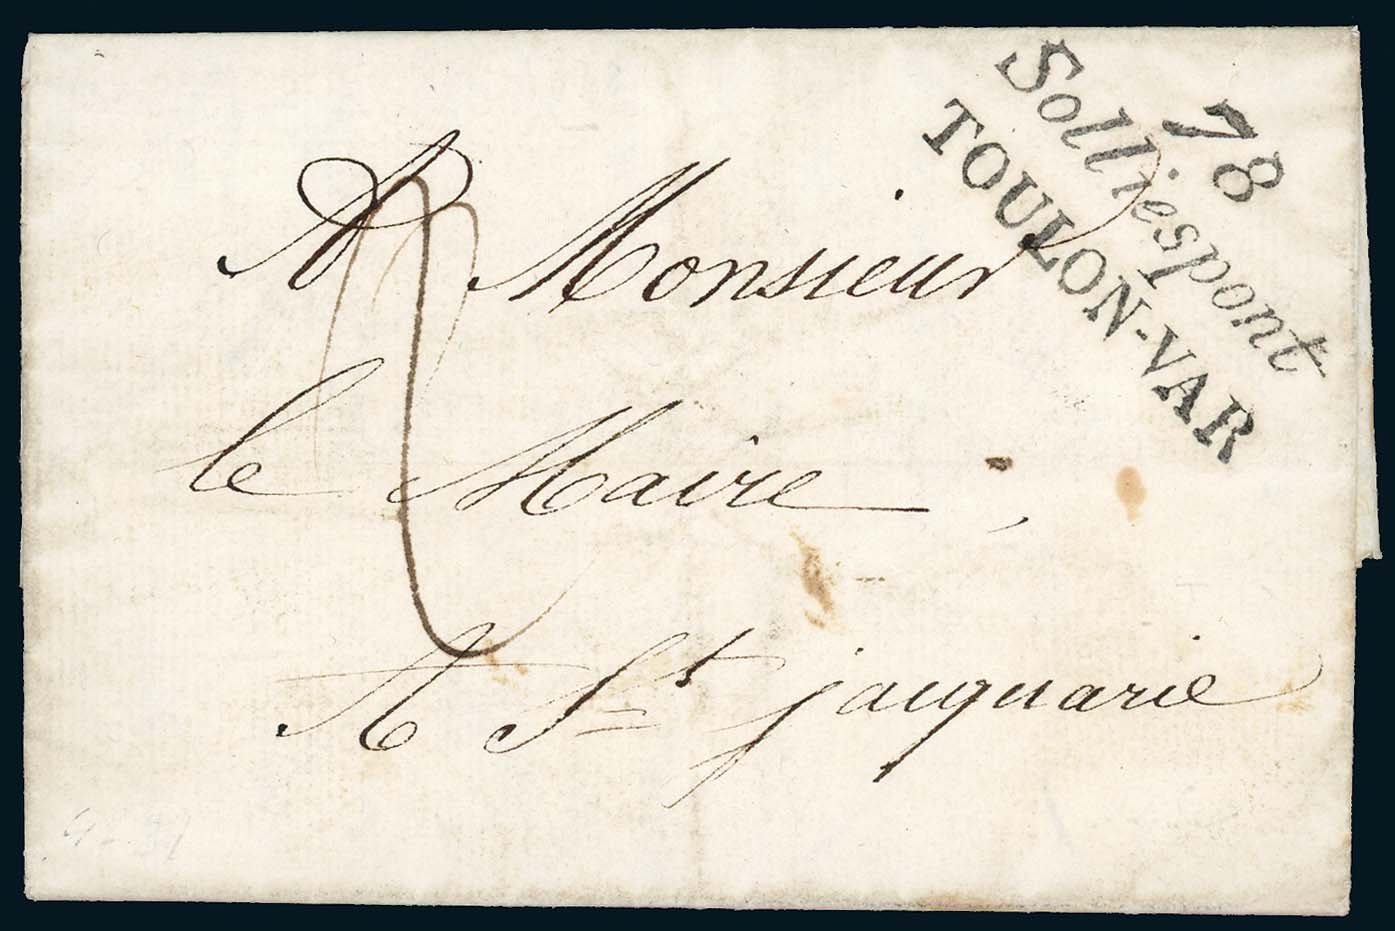 78
Solliespont
TOULON-VAR
A Monsieur
le Maire
A St jacquarie